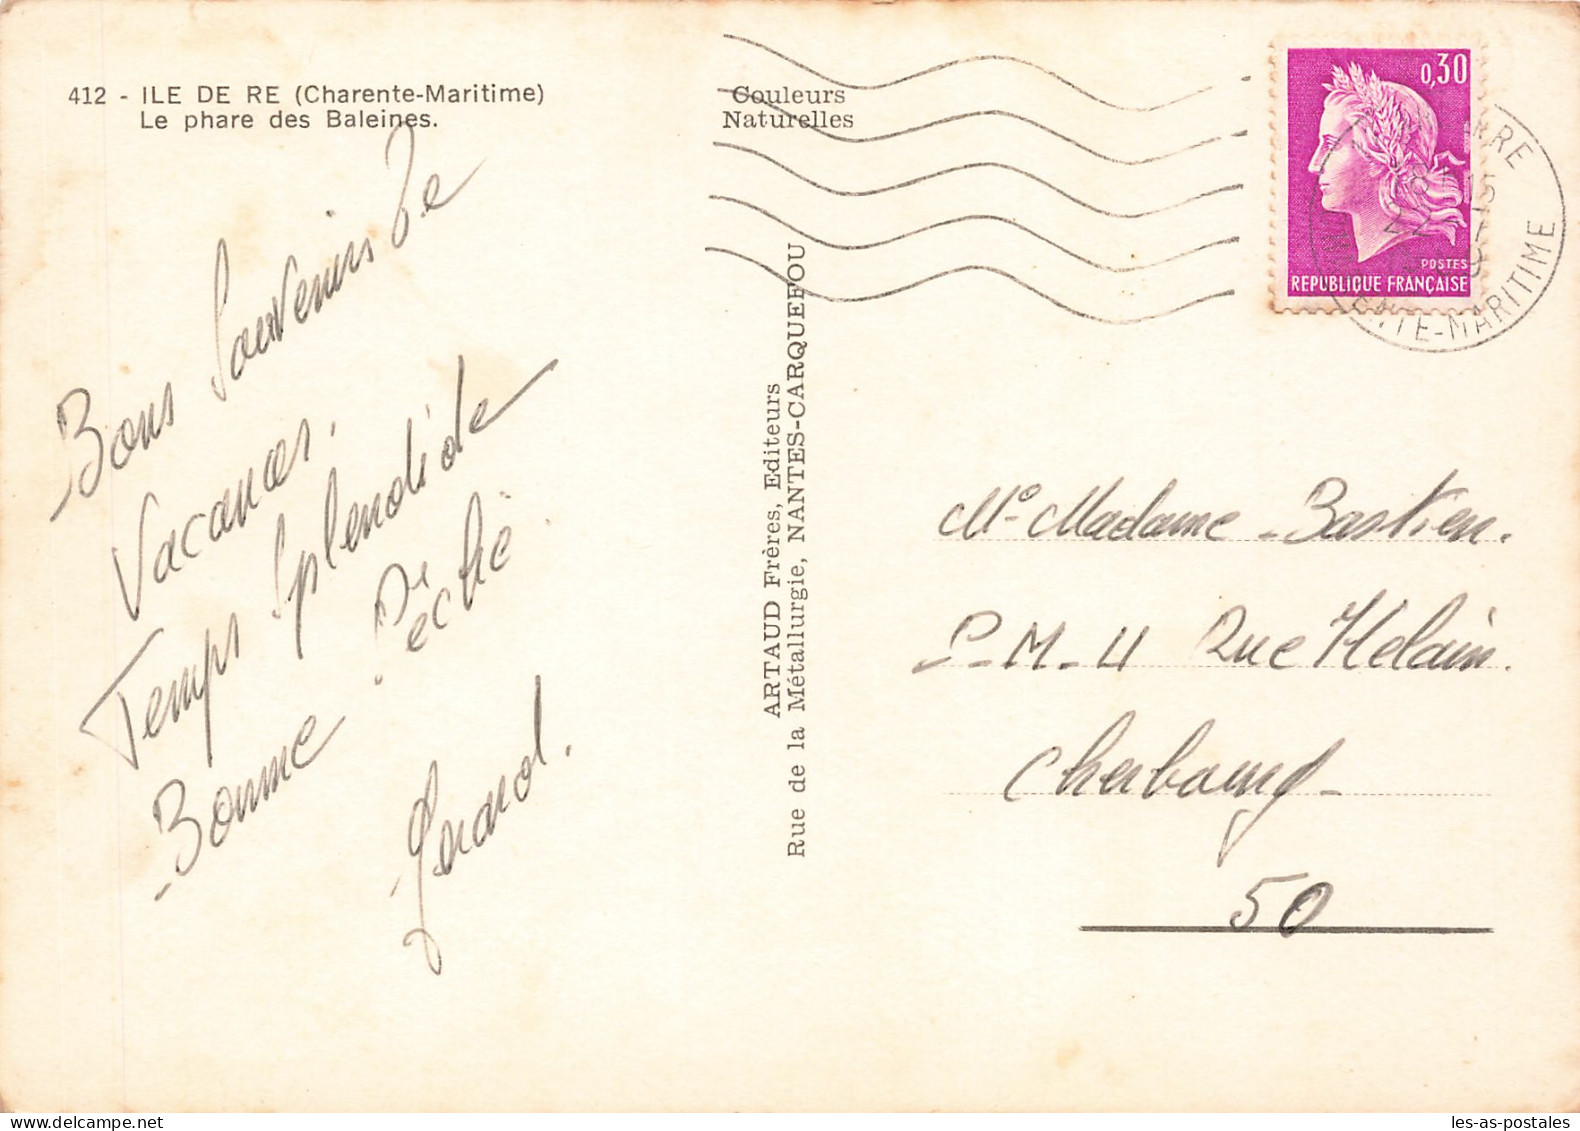 412 - ILE DE RE (Charente-Maritime)
Le phare des Baleines.
Couleurs
Naturelles
0,30
POSTES
REPUBLIQUE FRANÇAISE
ENTE-MARITIME
Bons Souvenirs de
Vacances.
Temps Splendide
Bonne Pêche
Gérard.
ARTAUD Frères, Editeurs
Rue de la Métallurgie, NANTES-CARQUEFOU
Mr Madame - Bastien.
P-M-4 Rue Helain.
Cherbourg-
50
les-as-postales